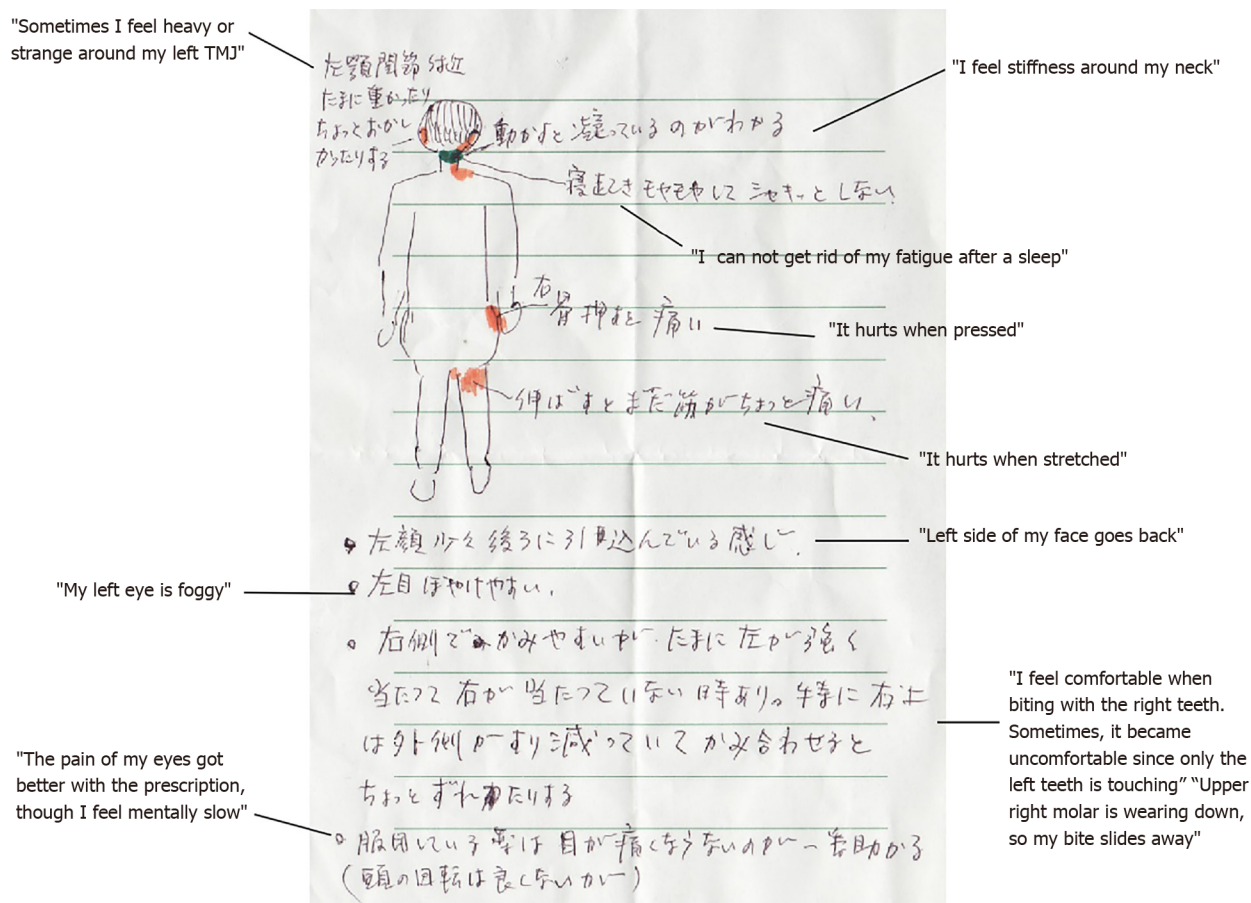 "Sometimes I feel heavy or
strange around my left TMJ"
左顎関節付近
たまに重かったり
ちょっとおかし
かったりする
動かすと凝っているのがわかる
"I feel stiffness around my neck"
寝起きモヤモヤして シャキッとしない
"I can not get rid of my fatigue after a sleep"
右
骨押すと痛い
"It hurts when pressed"
伸ばすとまだ筋がちょっと痛い、
"It hurts when stretched"
左顔少々後ろに引込んでいる感じ、
"Left side of my face goes back"
左目ぼやけやすい、
"My left eye is foggy"
右側でかみやすいが、たまに左が強く
当たって右が当たっていない時あり。特に右上
は外側がすり減っていてかみ合わせると
ちょっとずれたりする
"I feel comfortable when
biting with the right teeth.
Sometimes, it became
uncomfortable since only the
left teeth is touching" “Upper
right molar is wearing down,
so my bite slides away"
"The pain of my eyes got
better with the prescription,
though I feel mentally slow"
服用している薬は目が痛くならないのが一番助かる
(頭の回転は良くないがー)